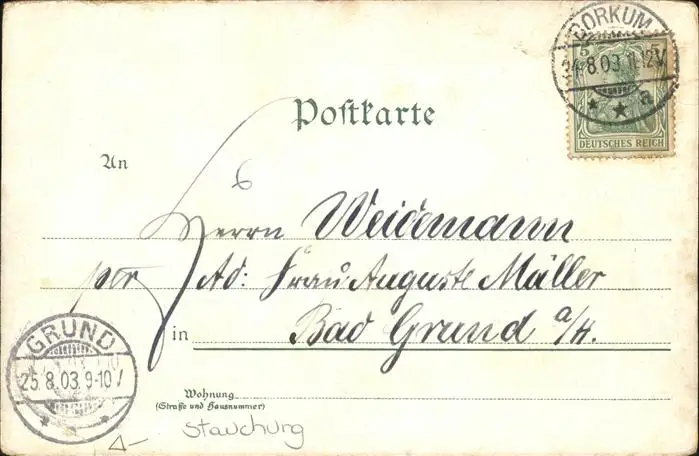 BORKUM
24.8.03.11-12V
* * a
5 5
DEUTSCHES REICH
Postkarte
An
Herrn Weidemann
per Ad: Frau Auguste Müller
in Bad Grund a/H.
GRUND
25.8.03.9-10V
Wohnung
(Straße und Hausnummer)
Stauchung